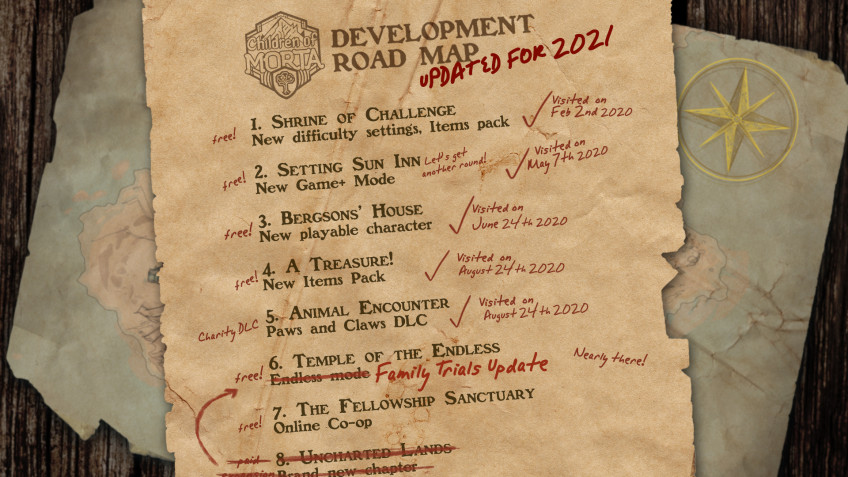 Children of
MORTA
DEVELOPMENT
ROAD MAP
UPDATED FOR 2021
free!
1. SHRINE OF CHALLENGE
New difficulty settings, Items pack
Visited on
Feb 2nd 2020
free!
2. SETTING SUN INN
Let's get
another round!
New Game+ Mode
Visited on
May 7th 2020
free!
3. BERGSONS' HOUSE
New playable character
Visited on
June 24th 2020
free!
4. A TREASURE!
New Items Pack
Visited on
August 24th 2020
Charity DLC
5. ANIMAL ENCOUNTER
Paws and Claws DLC
Visited on
August 24th 2020
free!
6. TEMPLE OF THE ENDLESS
Endless mode Family Trials Update
Nearly there!
free!
7. THE FELLOWSHIP SANCTUARY
Online Co-op
paid
8. UNCHARTED LANDS
expansion
Brand new chapter